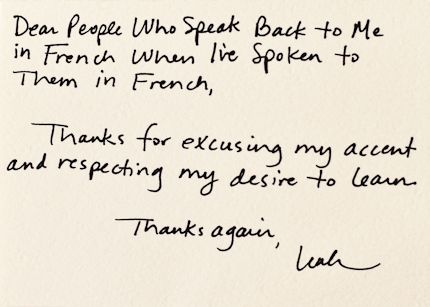 Dear People Who Speak Back to Me
in French When I've Spoken to
Them in French,
Thanks for excusing my accent
and respecting my desire to learn.
Thanks again,
Leah